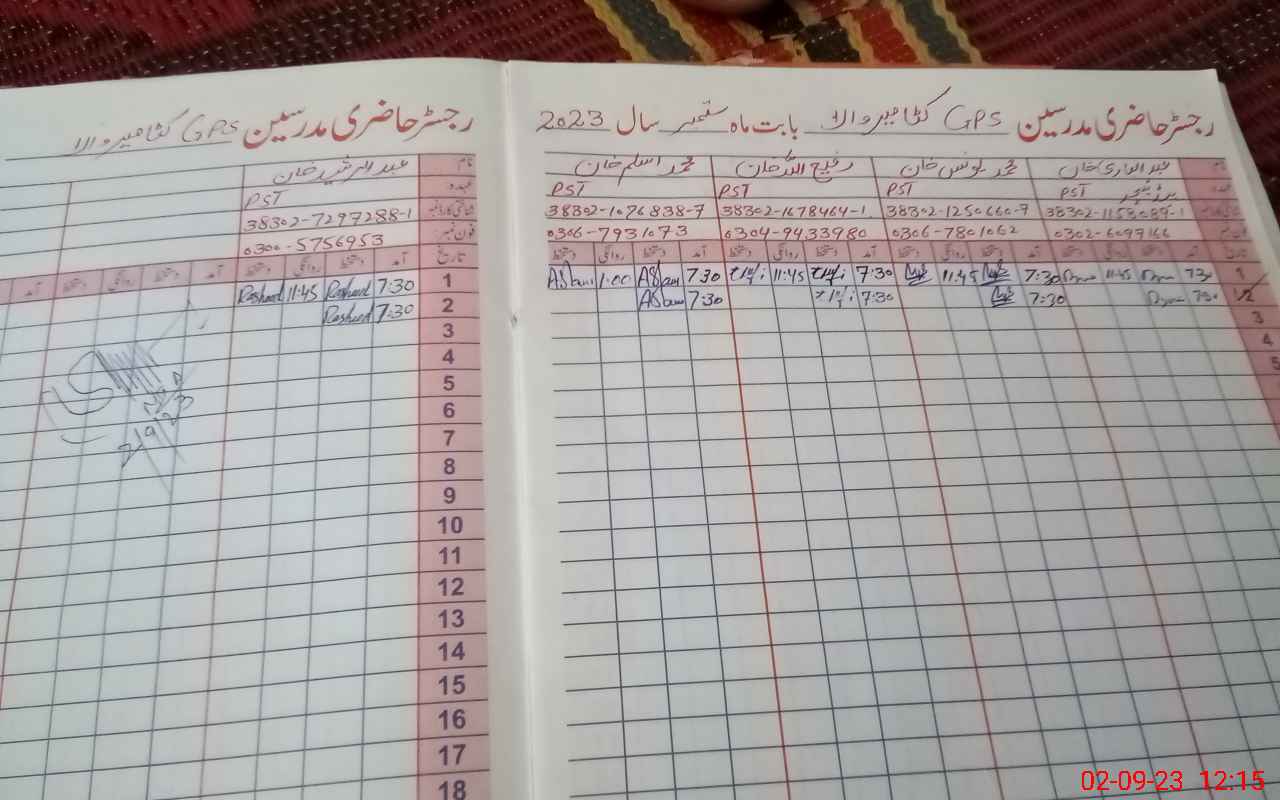 رجسٹر حاضری مدرسین GPS کٹا میر والا بابت ماہ ستمبر سال 2023
نام عبدالباری خان محمد یونس خان رفیع اللہ خان محمد اسلم خان
عہدہ PST ہیڈ ٹیچر PST PST PST
38302-1158089-1 38302-1250660-7 38302-1678464-1 38302-1076838-7
0302-6097166 0306-7801062 0304-9433980 0306-7931073
تاریخ آمد دستخط روانگی دستخط آمد دستخط روانگی دستخط آمد دستخط روانگی دستخط آمد دستخط روانگی دستخط
1 7:30 11:45 7:30 11:45 7:30 11:45 7:30 Aslam 1:00 Aslam
2 7:30 7:30 7:30 7:30 Aslam
3
4
5
رجسٹر حاضری مدرسین GPS کٹا میر والا
نام عبدالرشید خان
عہدہ PST
شناختی کارڈ نمبر 38302-7297288-1
فون نمبر 0300-5756953
تاریخ آمد دستخط روانگی دستخط آمد دستخط روانگی دستخط آمد
1 7:30 Rasheed 11:45 Rasheed
2 7:30 Rasheed
3
4
5
6
7
8
9
10
11
12
13
14
15
16
17
18
2/9/23
02-09-23 12:15